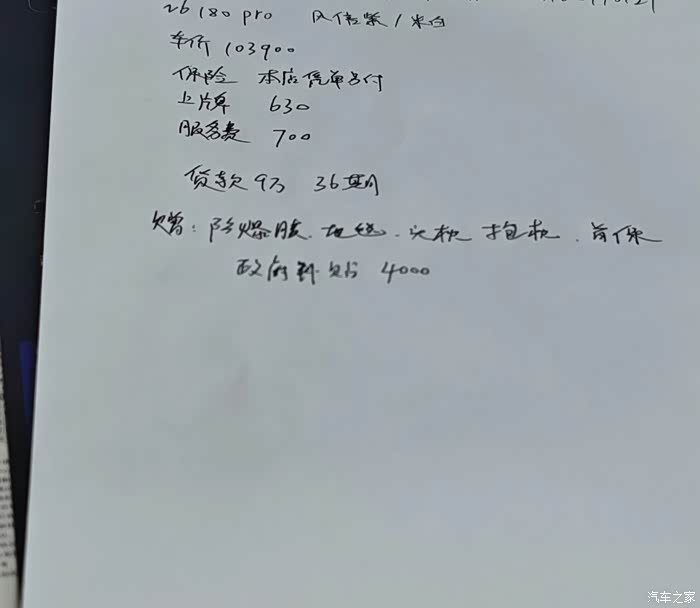 26 180 pro 风信紫/米白
车价 103900
保险 本店凭单另付
上牌 630
服务费 700
贷款9万 36期
赠：防爆膜、地毯、头枕 抱枕、首保
政府补贴 4000
汽车之家